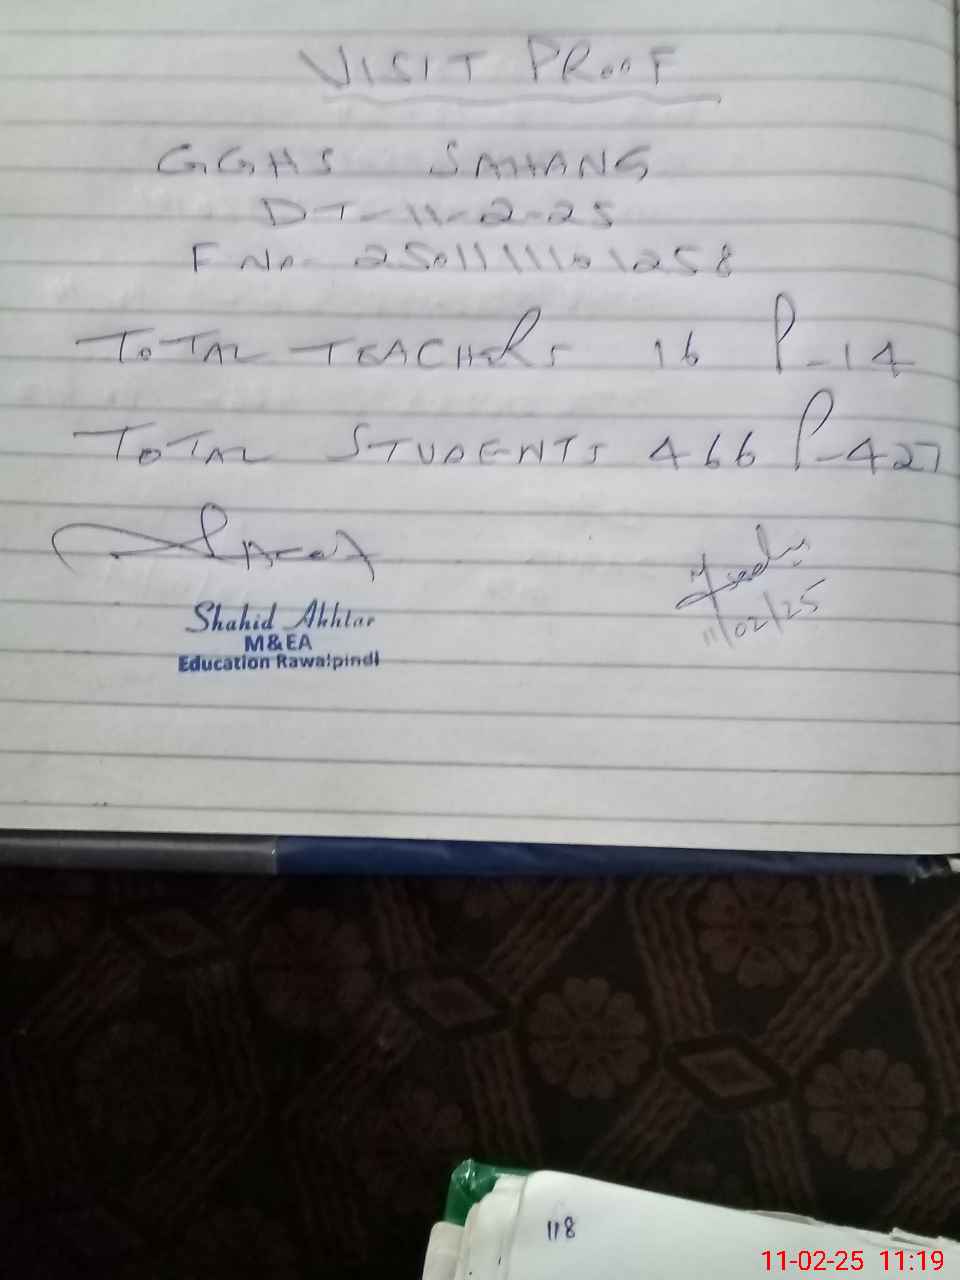 VISIT PROOF
GGHS SAHANG
DT-11-2-25
F No- 25011111101258
TOTAL TEACHERS 16 P-14
TOTAL STUDENTS 466 P-427
Shahid Akhtar
M&EA
Education Rawalpindi
11/02/25
118
11-02-25 11:19